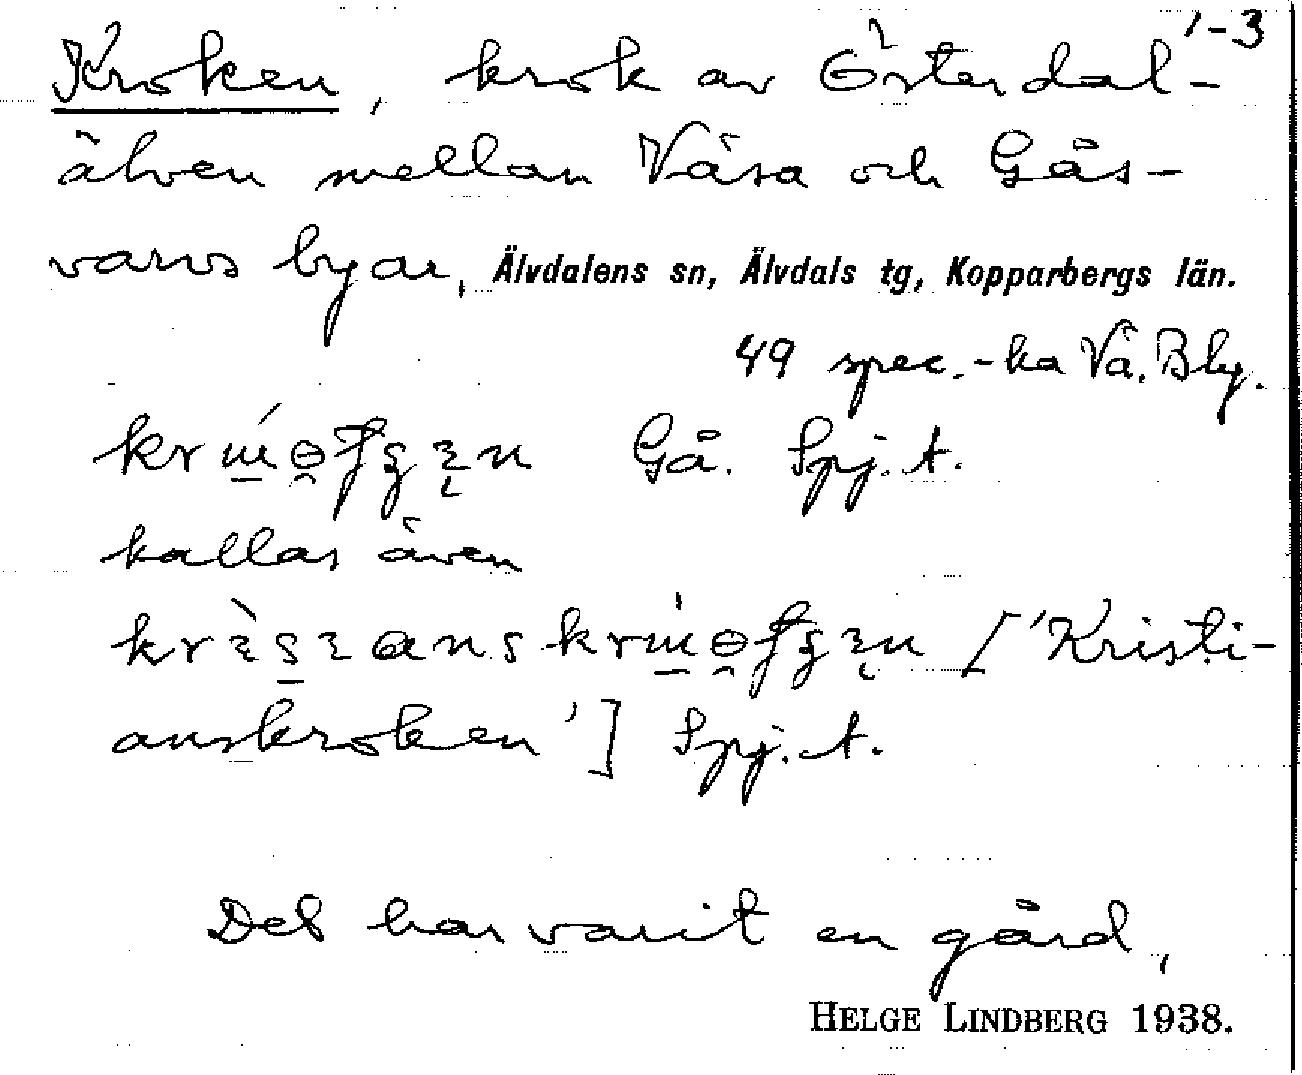 1-3
Kroken, krok av Österdal-
älven mellan Våsa och Gås-
varvs byar, Älvdalens sn, Älvdals tg, Kopparbergs län.
49 spec.-ka Vå. Bly.
Gå. Spj. A.
kallas även
['Kristi-
anskroken'] Spj. A.
Det har varit en gård,
HELGE LINDBERG 1938.